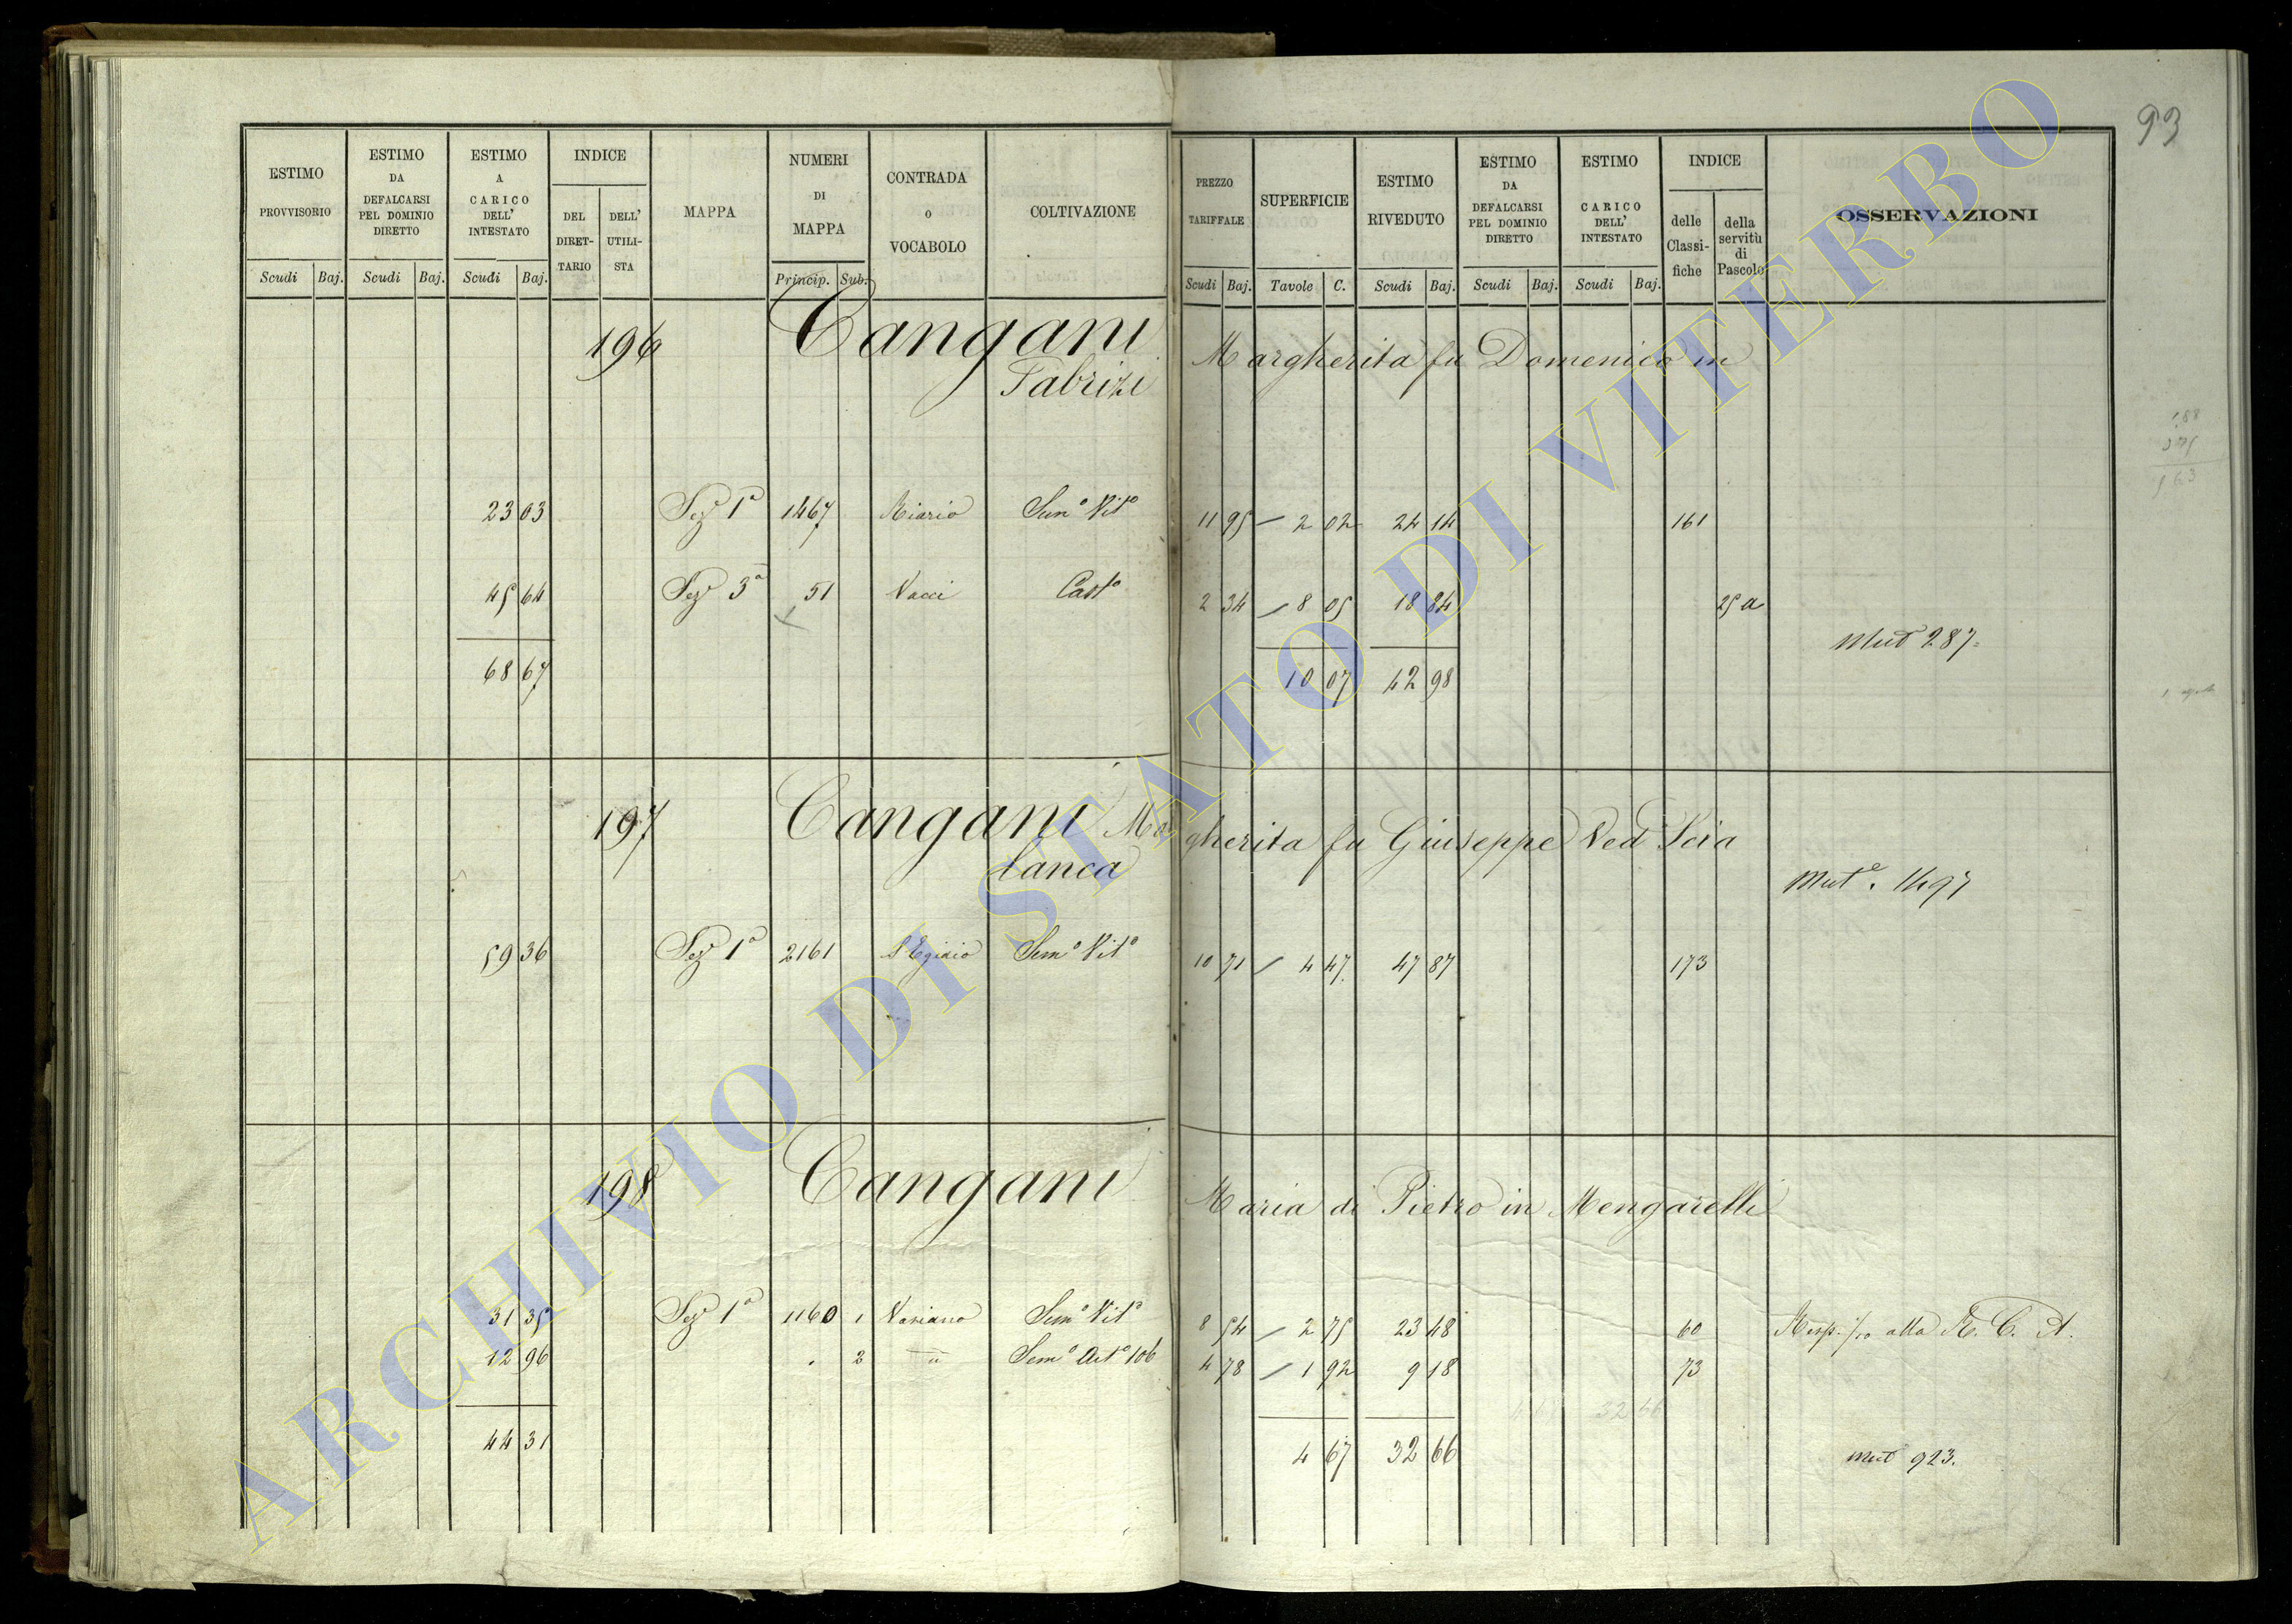 93
ESTIMO PROVVISORIO Scudi Baj.
ESTIMO DA DEFALCARSI PEL DOMINIO DIRETTO Scudi Baj.
ESTIMO A CARICO DELL' INTESTATO Scudi Baj.
INDICE DEL DIRETTARIO DELL' UTILISTA
MAPPA
NUMERI DI MAPPA Princip. Sub.
CONTRADA O VOCABOLO
COLTIVAZIONE
PREZZO TARIFFALE Scudi Baj.
SUPERFICIE Tavole C.
ESTIMO RIVEDUTO Scudi Baj.
ESTIMO DA DEFALCARSI PEL DOMINIO DIRETTO Scudi Baj.
ESTIMO A CARICO DELL' INTESTATO Scudi Baj.
INDICE delle Classifiche della servitù di Pascolo
OSSERVAZIONI
196 Cangani Margherita fu Domenico in
Fabrizi
23 03 Sez. 1a 1467 Riario Sem.o Vit.o 11 95 2 02 24 14 161
45 64 Sez. 3a 51 Vacci Cast.o 2 34 8 05 18 84 25 a
Mut 287
68 67 10 07 42 98
197 Cangani Margherita fu Giuseppe Ved Scia
lanca
Mut.e 1497
59 36 Sez. 1a 2161 S Egidio Sem.o Vit.o 10 71 4 47 47 87 173
198 Cangani Maria di Pietro in Mengarelli
31 35 Sez. 1a 1160 1 Vasiano Sem.o Vit.o 8 54 2 75 23 48 60 Risp. alla R. C. A.
12 96 2 " Sem.o Art.o 106 4 78 1 92 9 18 73
32 66
44 31 4 67 32 66
Mut 923.
ARCHIVIO DI STATO DI VITERBO